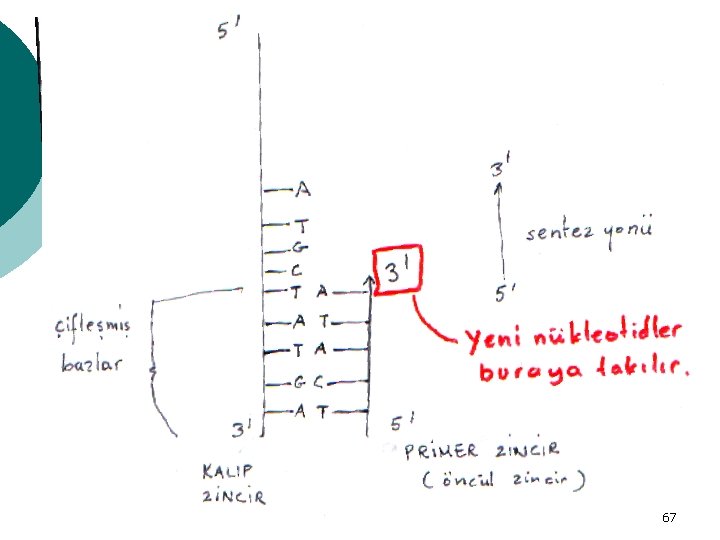 5'
3'
A
T
G
C
3'
sentez yönü
5'
T A
A T
T A
G C
A T
Yeni nükleotidler
buraya takılır.
çifleşmiş
bazlar
3'
5'
KALIP
ZİNCİR
PRİMER ZİNCİR
(öncül zincir)
67